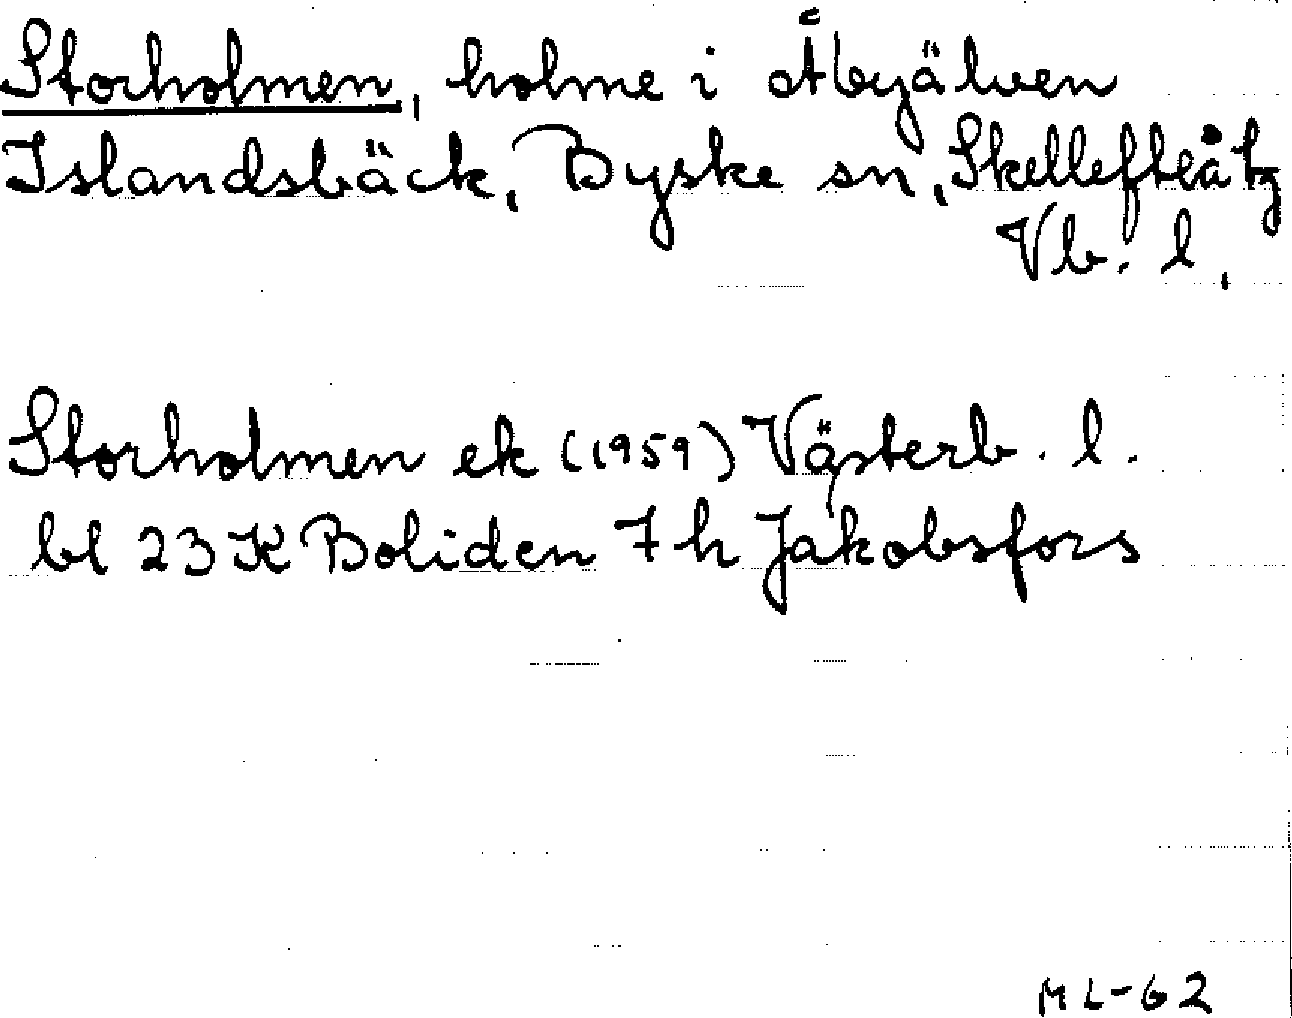 Storholmen, holme i Åbyälven
Islandsbäck, Byske sn, Skellefteå tg
Vb. l.
Storholmen ek (1959) Västerb. l.
bl 23 K Boliden 7 h Jakobsfors
ML-62